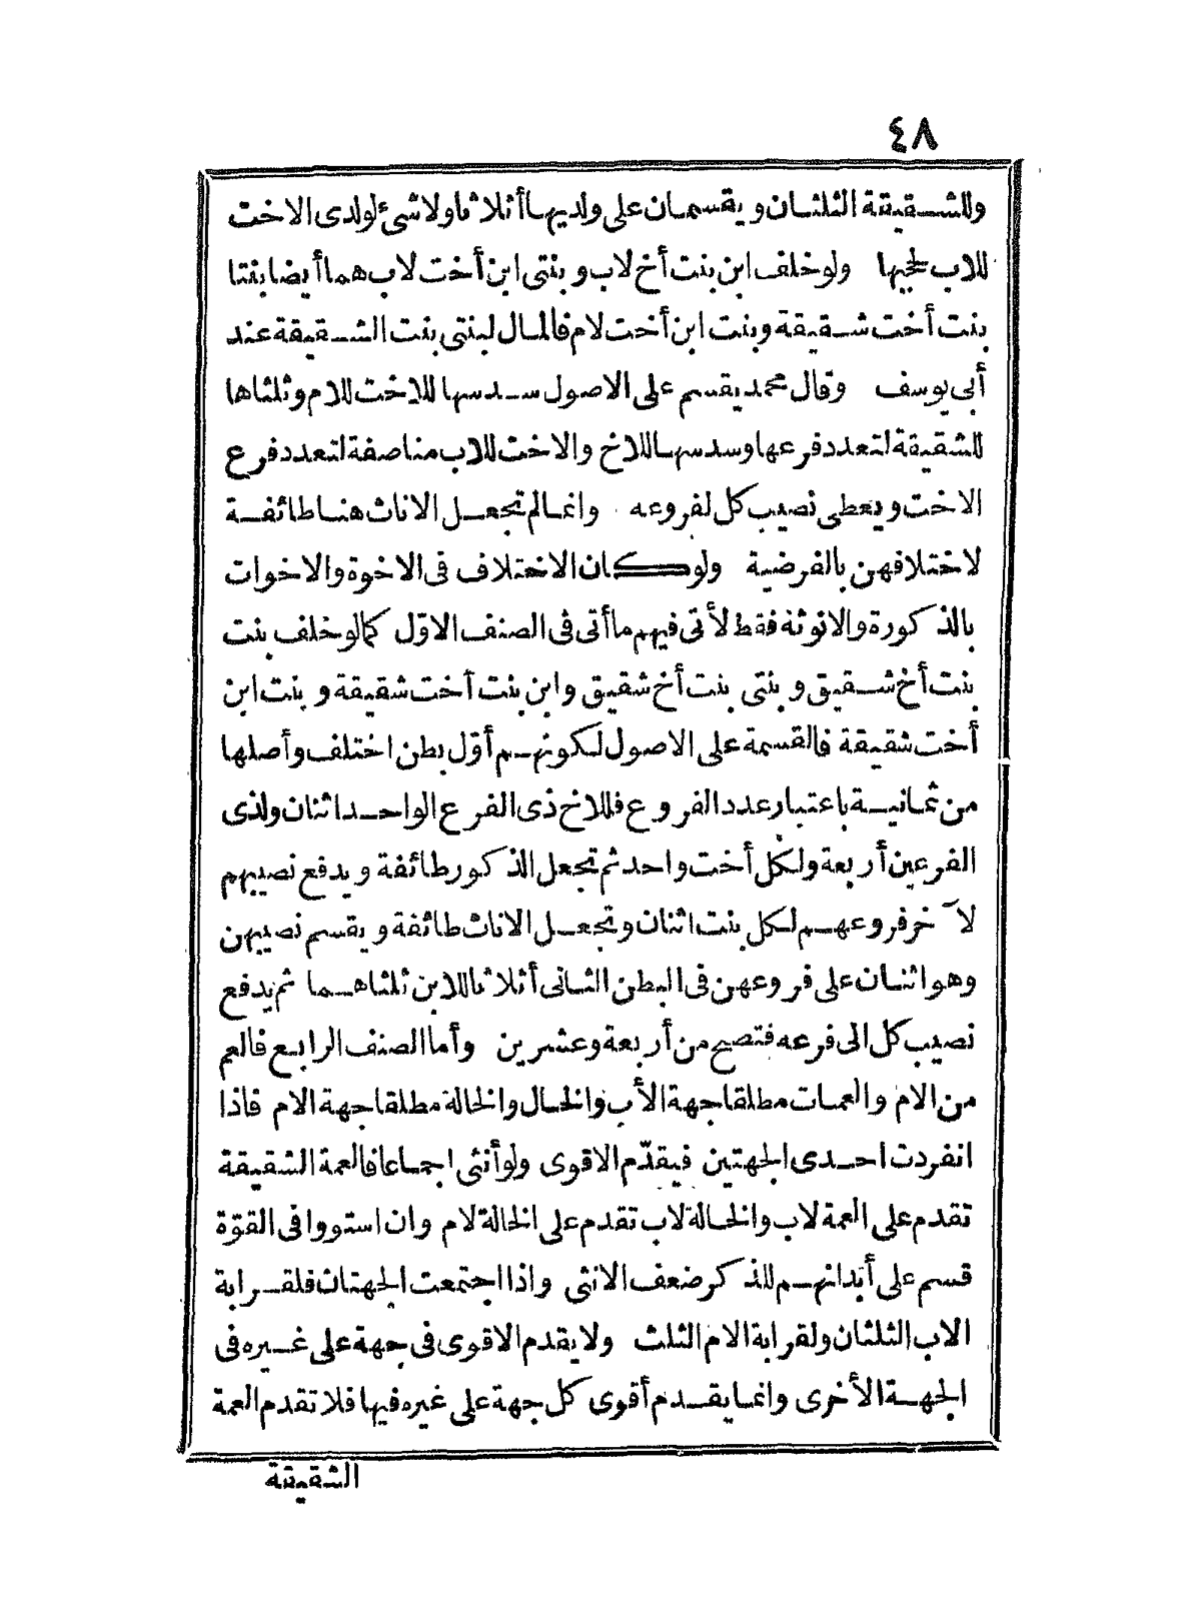 ٤٨
وللشقيقة الثلثان ويقسمان على ولديها أثلاثا ولا شئ لولدى الاخت
للاب لحجبها ولو خلف ابن بنت أخ لاب وبنتى ابن أخت لاب هما أيضا بنتا
بنت أخت شقيقة وبنت ابن أخت لام فالمال لبنتى بنت الشقيقة عند
أبى يوسف وقال محمد يقسم على الاصول سدسها للاخت للام وثلثاها
للشقيقة لتعدد فرعها وسدسها للاخ والاخت للاب مناصفة لتعدد فرع
الاخت ويعطى نصيب كل لفروعه وانما لم تجعل الاناث هنا طائفة
لاختلافهن بالفرضية ولو كان الاختلاف فى الاخوة والاخوات
بالذكورة والانوثة فقط لأتى فيهم ما أتى فى الصنف الاوّل كما لو خلف بنت
بنت أخ شقيق وبنتى بنت أخ شقيق وابن بنت أخت شقيقة وبنت ابن
أخت شقيقة فالقسمة على الاصول لكونهم أوّل بطن اختلف وأصلها
من ثمانية باعتبار عدد الفروع فللاخ ذى الفرع الواحد اثنان ولذى
الفرعين أربعة ولكل أخت واحد ثم تجعل الذكور طائفة ويدفع نصيبهم
لآخر فروعهم لكل بنت اثنان وتجعل الاناث طائفة ويقسم نصيبهن
وهو اثنان على فروعهن فى البطن الثانى أثلاثا للابن ثلثاهما ثم يدفع
نصيب كل الى فرعه فتصح من أربعة وعشرين وأما الصنف الرابع فالعم
من الام والعمات مطلقا جهة الأب والخال والخالة مطلقا جهة الام فاذا
انفردت احدى الجهتين فيقدّم الاقوى ولو أنثى اجماعا فالعمة الشقيقة
تقدم على العمة لاب والخالة لاب تقدم على الخالة لام وان استووا فى القوّة
قسم على أبدانهم للذكر ضعف الانثى واذا اجتمعت الجهتان فلقرابة
الاب الثلثان ولقرابة الام الثلث ولا يقدم الاقوى فى جهة على غيره فى
الجهة الأخرى وانما يقدم أقوى كل جهة على غيره فيها فلا تقدم العمة
الشقيقة